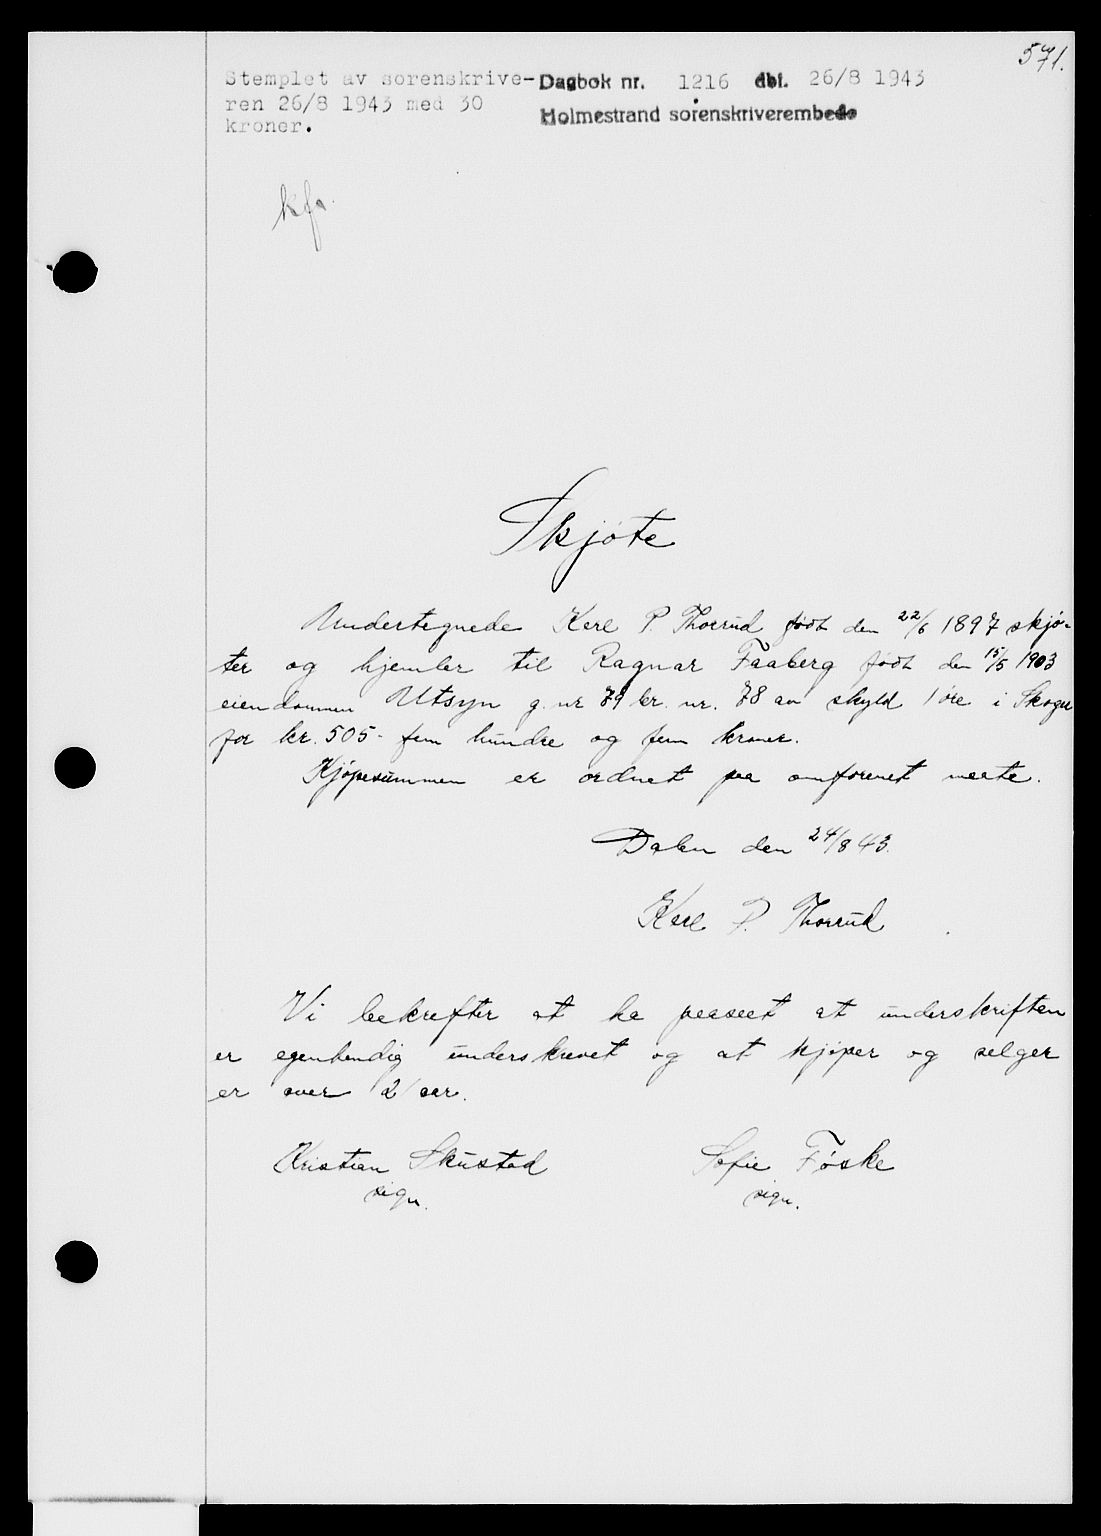 571.
Stemplet av sorenskrive-
ren 26/8 1943 med 30
kroner.
Dagbok nr. 1216 dbf. 26/8 1943
Holmestrand sorenskriverembede
kfo.
Skjöte
Undertegnede Karl P. Thorrud født den 22/6 1897 skjö-
ter og hjemler til Ragnar Faaberg født den 15/5 1903
eiendommen Utsyn g. nr 79 br. nr. 78 av skyld 1 öre i Skoger
for kr. 505- fem hundre og fem kroner.
Kjöpesummen er ordnet paa omforenet maate.
Dalen den 24/8 43.
Karl P. Thorrud
Vi bekrefter at ha paaseet at underskriften
er egenhendig underskrevet og at kjöper og selger
er over 21 aar.
Kristian Skustad
sign.
Sofie Föske
sign.